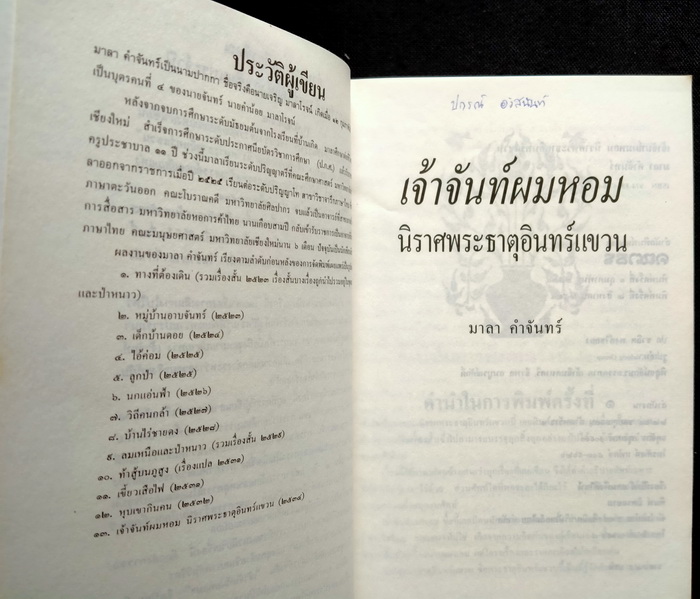 ประวัติผู้เขียน
มาลา คำจันทร์เป็นนามปากกา ชื่อจริงคือนายเจริญ มาลาโรจน์ เกิดเมื่อ
เป็นบุตรคนที่ ๔ ของนายจันทร์ นางคำน้อย มาลาโรจน์
หลังจากจบการศึกษาระดับมัธยมต้นจากโรงเรียนที่บ้านเกิด
เชียงใหม่ สำเร็จการศึกษาระดับประกาศนียบัตรวิชาการศึกษา (ป.กศ.)
ครูประชาบาล ๑๑ ปี ช่วงนี้มาลาเรียนระดับปริญญาตรีที่คณะศึกษาศาสตร์
ลาออกจากราชการเมื่อปี ๒๕๒๕ เรียนต่อระดับปริญญาโท สาขาวิชาจารึกภาษาไทย
ภาษาตะวันออก คณะโบราณคดี มหาวิทยาลัยศิลปากร จบแล้วเป็นอาจารย์
การสื่อสาร มหาวิทยาลัยหอการค้าไทย นานเกือบสามปี กลับเข้ารับราชการเป็น
ภาษาไทย คณะมนุษยศาสตร์ มหาวิทยาลัยเชียงใหม่นาน ๖ เดือน
ผลงานของมาลา คำจันทร์ เรียงตามลำดับก่อนหลังของการจัดพิมพ์
๑. ทางที่ต้องเดิน (รวมเรื่องสั้น ๒๕๒๓ เรื่องสั้นบางเรื่องถูกนำไปรวม
และป่าหนาว)
๒. หมู่บ้านอาบจันทร์ (๒๕๒๓)
๓. เด็กบ้านดอย (๒๕๒๔)
๔. ไอ้ค่อม (๒๕๒๕)
๕. ลูกป่า (๒๕๒๕)
๖. นกแอ่นฟ้า (๒๕๒๖)
๗. วิถีคนกล้า (๒๕๒๗)
๘. บ้านไร่ชายดง (๒๕๒๘)
๙. ลมเหนือและป่าหนาว (รวมเรื่องสั้น ๒๕๒๙)
๑๐. ท้าสู้บนภูสูง (เรื่องแปล ๒๕๓๑)
๑๑. เขี้ยวเสือไฟ (๒๕๓๑)
๑๒. หุบเขากินคน (๒๕๓๒)
๑๓. เจ้าจันท์ผมหอม นิราศพระธาตุอินทร์แขวน (๒๕๓๔)
ปกรณ์
เจ้าจันท์ผมหอม
นิราศพระธาตุอินทร์แขวน
มาลา คำจันทร์